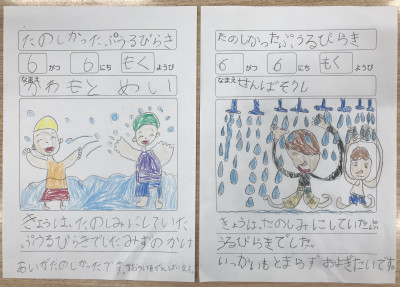 たのしかったぷうるびらき
6がつ6にちもくようび
なまえ
かわもとめい
きょうは、たのしみにしていた
ぷうるびらきでした。みずのかけ
あいがたのしかったです。
たのしかったぷうるびらき
6がつ6にちもくようび
なまえ
せんばそうし
きょうは、たのしみにしていたぷ
うるびらきでした。
いっかいもとまらずおよぎたいです。